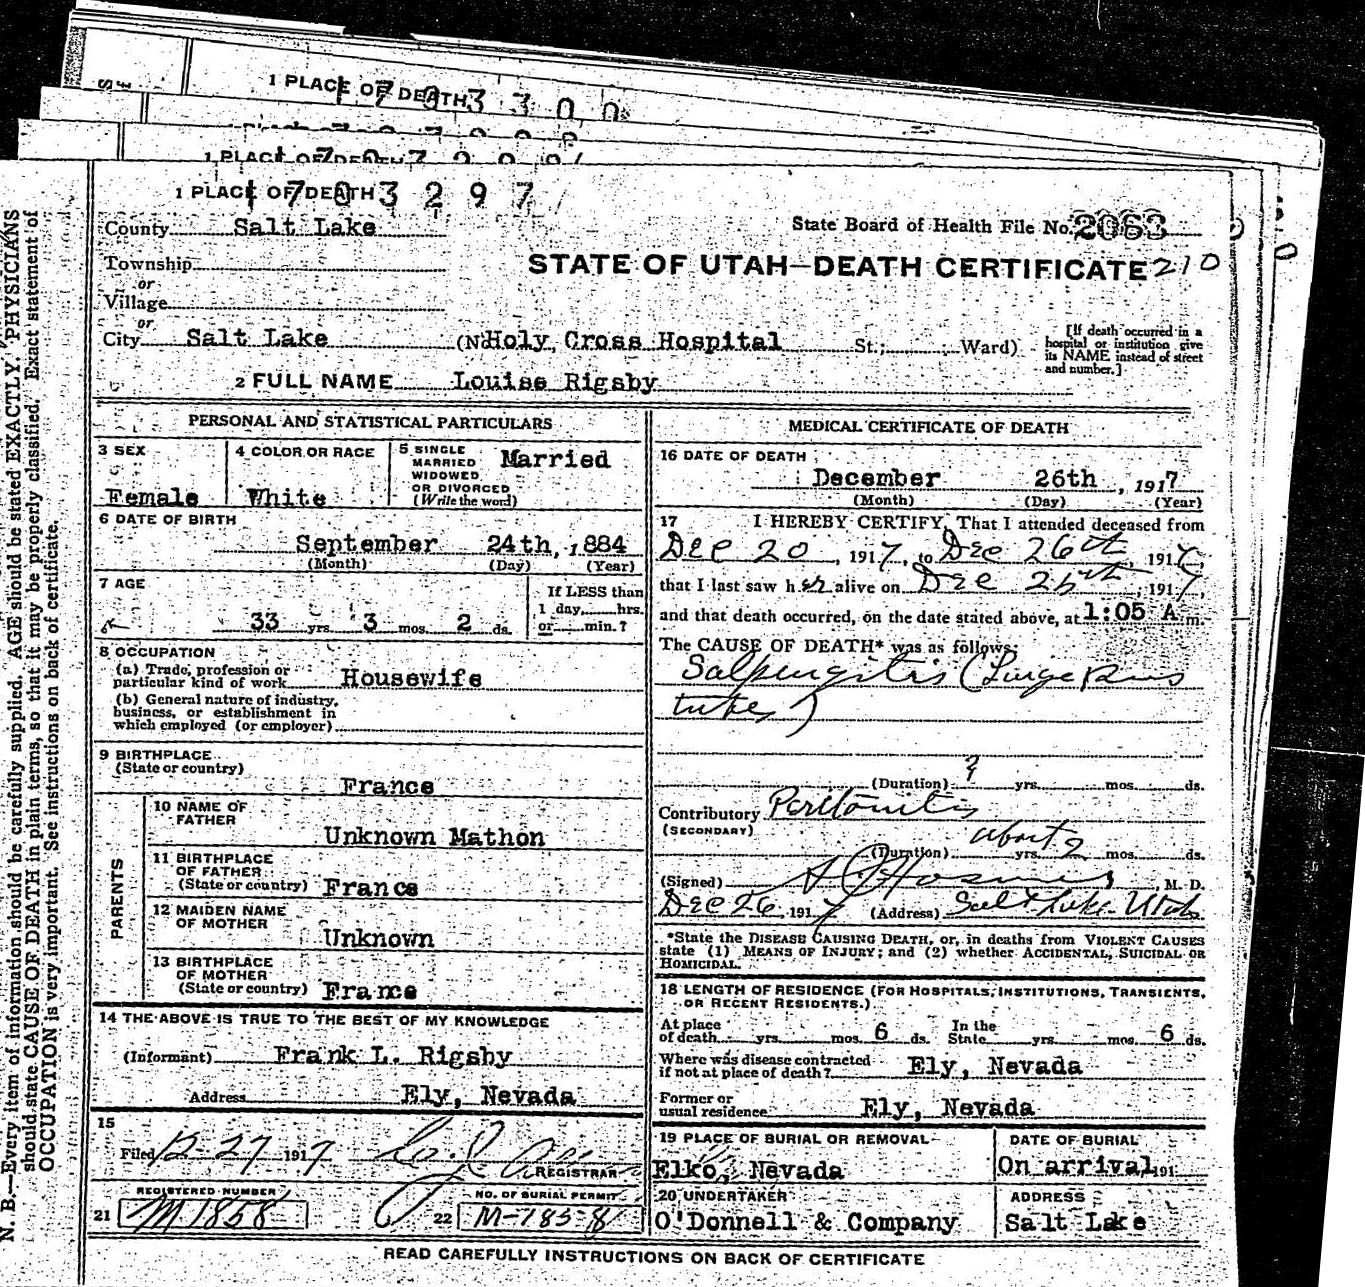 1 PLACE OF DEATH
1703300
1 PLACE OF DEATH
1 PLACE OF DEATH
1703297
County Salt Lake
State Board of Health File No. 2063
Township
or
Village
STATE OF UTAH—DEATH CERTIFICATE 210
or
City Salt Lake (No. Holy Cross Hospital St.; Ward)
[If death occurred in a
hospital or institution give
its NAME instead of street
and number.]
2 FULL NAME Louise Rigsby
PERSONAL AND STATISTICAL PARTICULARS
3 SEX
Female
4 COLOR OR RACE
White
5 SINGLE
MARRIED
WIDOWED
OR DIVORCED
(Write the word)
Married
6 DATE OF BIRTH
September 24th, 1884
(Month) (Day) (Year)
7 AGE
33 yrs. 3 mos. 2 ds.
If LESS than
1 day, hrs.
or min.?
8 OCCUPATION
(a) Trade, profession or
particular kind of work Housewife
(b) General nature of industry,
business, or establishment in
which employed (or employer)
9 BIRTHPLACE
(State or country)
France
PARENTS
10 NAME OF
FATHER
Unknown Mathon
11 BIRTHPLACE
OF FATHER
(State or country) France
12 MAIDEN NAME
OF MOTHER
Unknown
13 BIRTHPLACE
OF MOTHER
(State or country) France
14 THE ABOVE IS TRUE TO THE BEST OF MY KNOWLEDGE
(Informant) Frank L. Rigsby
Address Ely, Nevada
15
Filed 12-27 1917
REGISTRAR
REGISTERED NUMBER
21 M1858
NO. OF BURIAL PERMIT
22 M-1858
MEDICAL CERTIFICATE OF DEATH
16 DATE OF DEATH
December 26th, 1917
(Month) (Day) (Year)
17 I HEREBY CERTIFY, That I attended deceased from
Dec 20, 1917, to Dec 26th, 1917,
that I last saw her alive on Dec 25th, 1917,
and that death occurred, on the date stated above, at 1:05 A m.
The CAUSE OF DEATH* was as follows:
Salpingitis (Large Pus
tubes)
(Duration) ? yrs. mos. ds.
Contributory Peritonitis
(SECONDARY)
(Duration) about 2 yrs. mos. ds.
(Signed) M. D.
Dec 26, 1917 (Address) Salt Lake Utah
*State the DISEASE CAUSING DEATH, or, in deaths from VIOLENT CAUSES
state (1) MEANS OF INJURY; and (2) whether ACCIDENTAL, SUICIDAL OR
HOMICIDAL.
18 LENGTH OF RESIDENCE (FOR HOSPITALS, INSTITUTIONS, TRANSIENTS,
OR RECENT RESIDENTS.)
At place
of death yrs. mos. 6 ds. In the
State yrs. mos. 6 ds.
Where was disease contracted
if not at place of death? Ely, Nevada
Former or
usual residence Ely, Nevada
19 PLACE OF BURIAL OR REMOVAL
Elko, Nevada
DATE OF BURIAL
On arrival, 191
20 UNDERTAKER
O'Donnell & Company
ADDRESS
Salt Lake
READ CAREFULLY INSTRUCTIONS ON BACK OF CERTIFICATE
N. B.—Every item of information should be carefully supplied. AGE should be stated EXACTLY. PHYSICIANS
should state CAUSE OF DEATH in plain terms, so that it may be properly classified. Exact statement of
OCCUPATION is very important. See instructions on back of certificate.